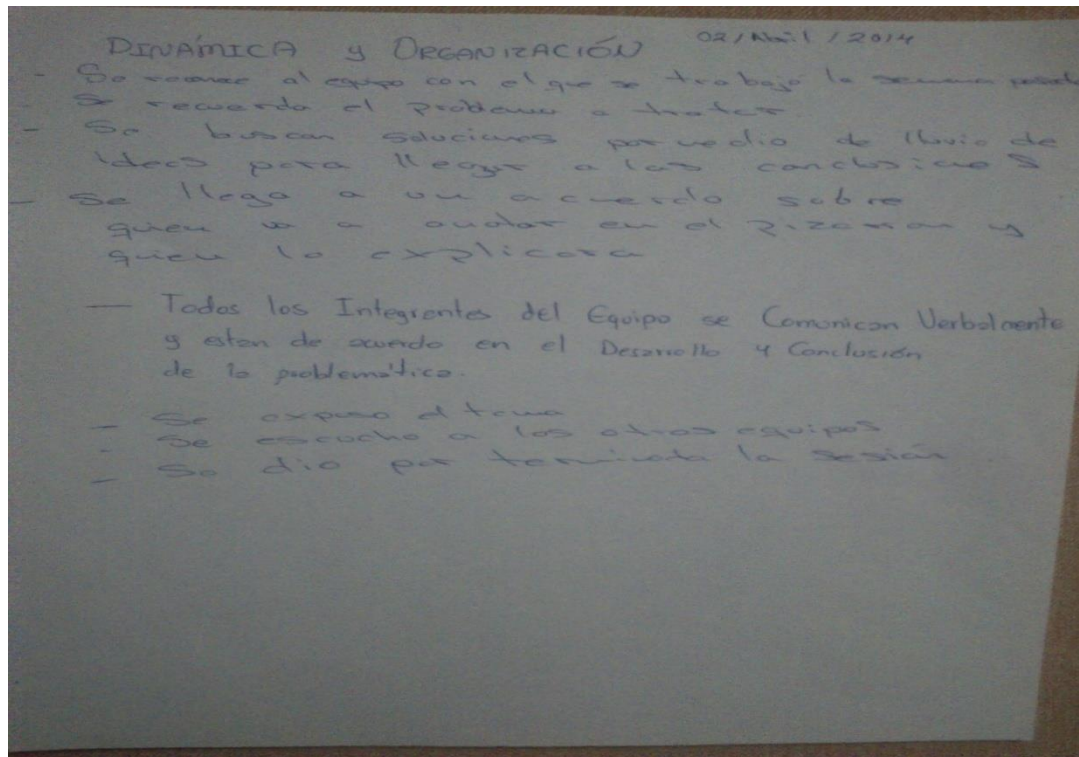 DINÁMICA y ORGANIZACIÓN 02/Abril/2014
- Se reconoce al equipo con el que se trabajo la semana pasada
- Se recuerda el problema a tratar
- Se buscan soluciones por medio de lluvia de
ideas para llegar a las conclusiones
- Se llega a un acuerdo sobre
quien va a anotar en el pizarron y
quien lo explicara
— Todos los Integrantes del Equipo se Comunican Verbalmente
y estan de acuerdo en el Desarrollo y Conclusión
de la problemática.
- Se expuso el tema
- Se escucho a los otros equipos
- Se dio por terminada la sesión